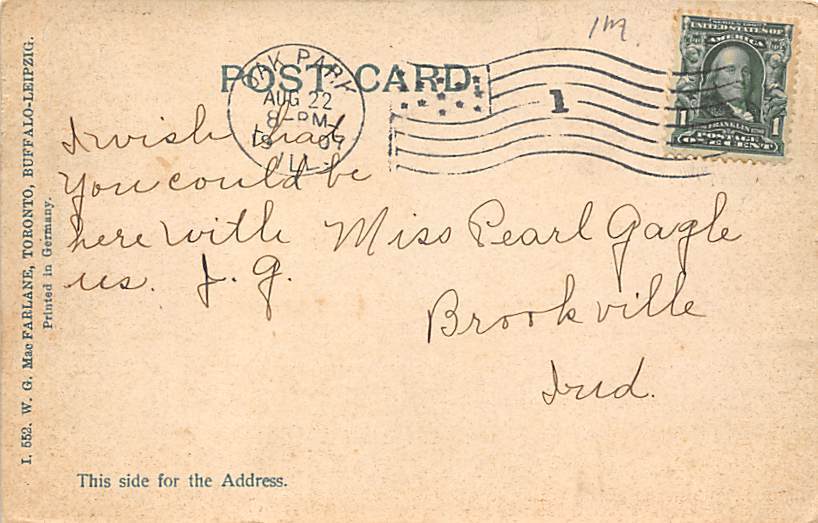 1M
POST CARD
OAK PARK
AUG 22
8-PM
1907
ILL
1
UNITED STATES OF
AMERICA
1 FRANKLIN 1
POSTAGE
ONE CENT
I wish that
You could be
here with
us. J. G.
Miss Pearl Gagle
Brookville
Ind.
This side for the Address.
I. 552. W. G. Mac FARLANE, TORONTO, BUFFALO-LEIPZIG.
Printed in Germany.